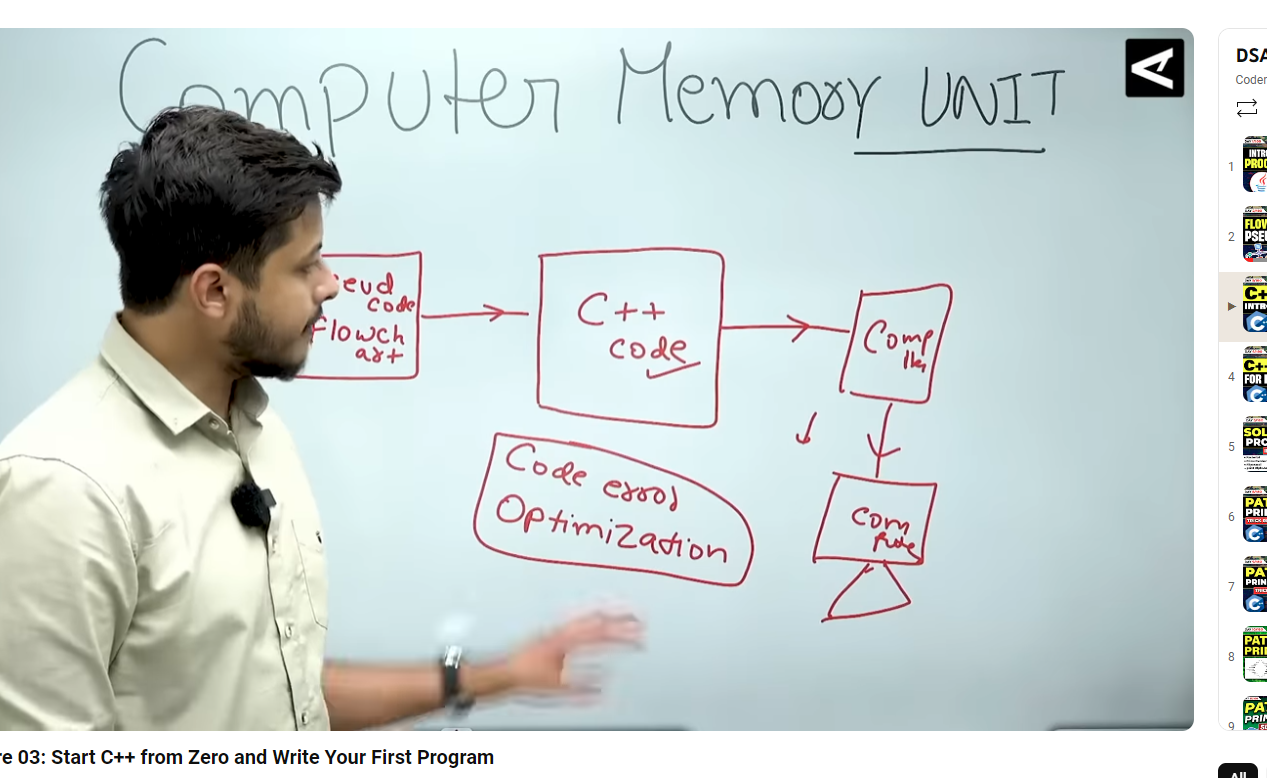 Computer Memory UNIT
eud
code
flowch
art
C++
code
Comp
iler
Code error
Optimization
Com
puter
re 03: Start C++ from Zero and Write Your First Program
DSA
Coder
1
INTR
PROG
2
FLOW
PSEU
C+
INTR
4
C+
FOR
5
SOL
PRO
6
PAT
PRIN
7
PAT
PRIN
8
PAT
PRI
9
PA
PRIN
All